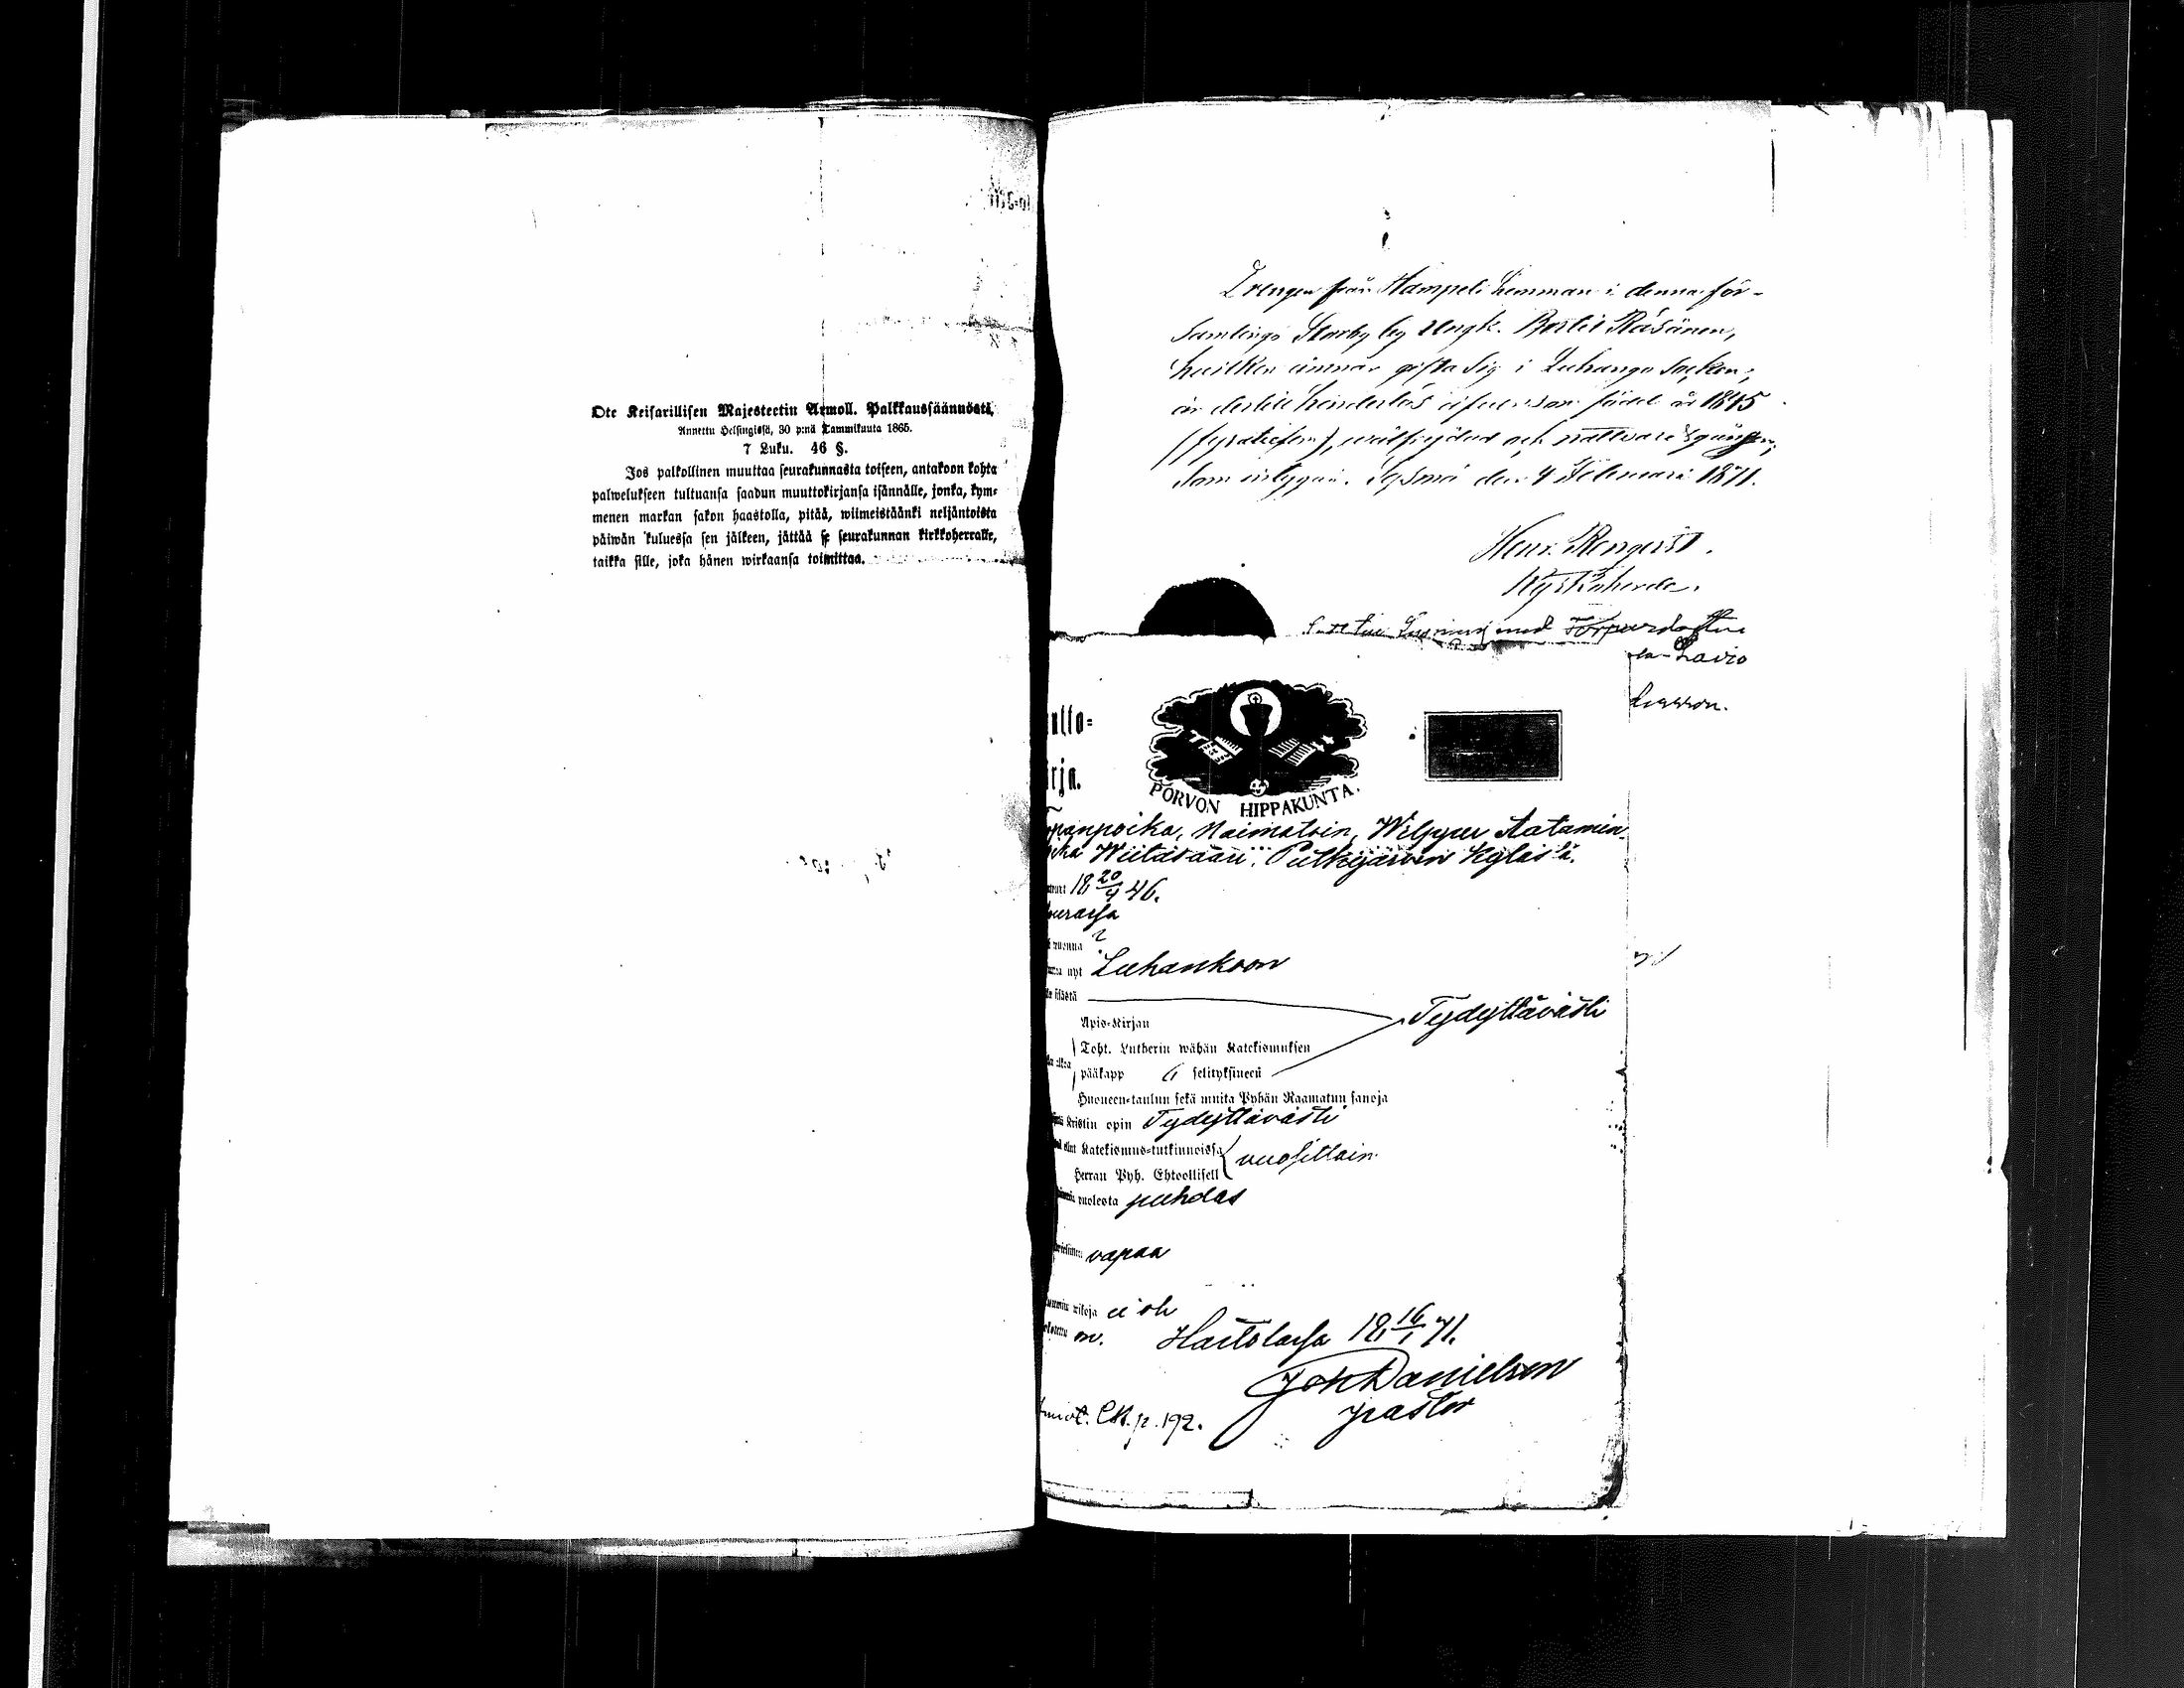 Ote Keisarillisen Majesteetin Armoll. Palkkaussäännöstä,
Annettu Helsingissä, 30 p:nä Tammikuuta 1865.
7 Luku. 46 §.
Jos palkollinen muuttaa seurakunnasta toiseen, antakoon kohta
palwelukseen tultuansa saadun muuttokirjansa isännälle, jonka, kym-
menen markan sakon haastolla, pitää, wiimeistäänki neljäntoista
päiwän kuluessa sen jälkeen, jättää se seurakunnan kirkkoherralle,
taikka sille, joka hänen wirkaansa toimittaa.
Drengen från Hampeli hemman i denna för-
samlings Storby by Ungk. Bertil Räsänen,
hvilken ämnar gifta sig i Luhango socken,
är född år 1845
och nattvardsgången,
den 4 Februari 1871.
Kyrkoherde.
med
Lavio
utto-
irja.
PORVON HIPPAKUNTA.
Naimatoin, Aatamin
Wiitasaari, Putkijärven Kylästä.
18 20/4 46.
wuonna ?
nyt Luhankoon
sisästä
Tydyttävästi
Apis-Kirjan
Toht. Lutherin wähän Katekismuksen
pääkapp 6 selityksineen
Huoneen-taulun sekä muita Pyhän Raamatun sanoja
Kristin opin Tydyttävästi
Katekismus-tutkinnoissa vuosittain
Herran Pyh. Ehtoollisell
puolesta puhdas
vapaa
wikoja ei ole
on. Hartolassa 18 16/1 71.
Joh Danielson
pastor
p. 192.